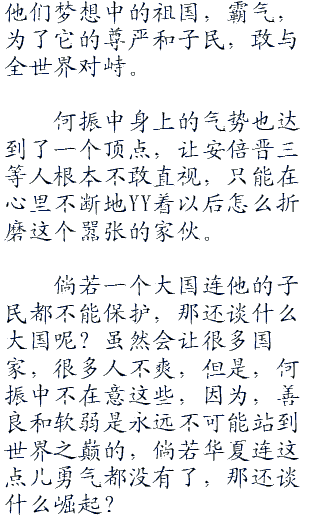 他们梦想中的祖国，霸气，
为了它的尊严和子民，敢与
全世界对峙。
何振中身上的气势也达
到了一个顶点，让安倍晋三
等人根本不敢直视，只能在
心里不断地YY着以后怎么折
磨这个嚣张的家伙。
倘若一个大国连他的子
民都不能保护，那还谈什么
大国呢？虽然会让很多国
家，很多人不爽，但是，何
振中不在意这些，因为，善
良和软弱是永远不可能站到
世界之巅的，倘若华夏连这
点儿勇气都没有了，那还谈
什么崛起？